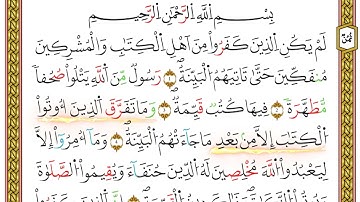 بِسْمِ اللَّهِ الرَّحْمَٰنِ الرَّحِيمِ
لَمْ يَكُنِ الَّذِينَ كَفَرُوا مِنْ أَهْلِ الْكِتَابِ وَالْمُشْرِكِينَ
مُنفَكِّينَ حَتَّىٰ تَأْتِيَهُمُ الْبَيِّنَةُ ۝١ رَسُولٌ مِّنَ اللَّهِ يَتْلُوا صُحُفًا
مُّطَهَّرَةً ۝٢ فِيهَا كُتُبٌ قَيِّمَةٌ ۝٣ وَمَا تَفَرَّقَ الَّذِينَ أُوتُوا
الْكِتَابَ إِلَّا مِنْ بَعْدِ مَا جَاءَتْهُمُ الْبَيِّنَةُ ۝٤ وَمَا أُمِرُوا إِلَّا
لِيَعْبُدُوا اللَّهَ مُخْلِصِينَ لَهُ الدِّينَ حُنَفَاءَ وَيُقِيمُوا الصَّلَاةَ